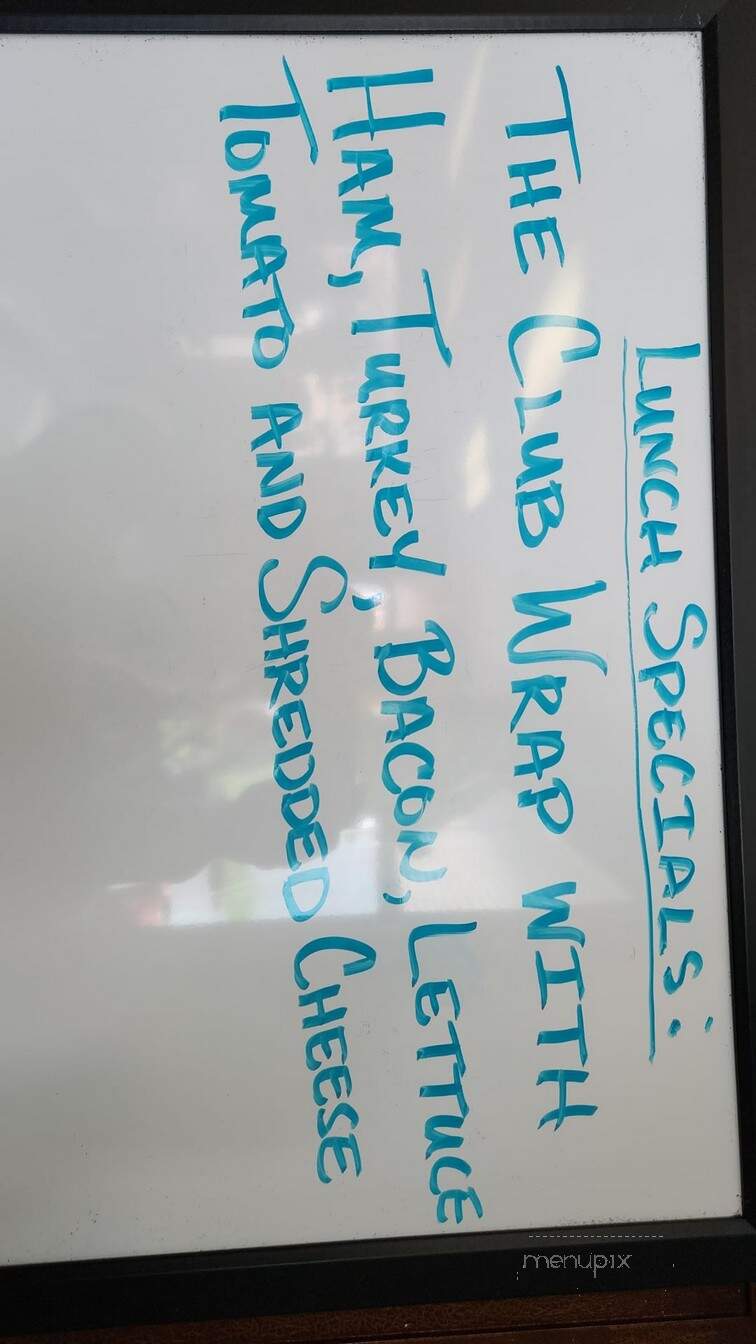 LUNCH SPECIALS:
THE CLUB WRAP WITH
HAM, TURKEY, BACON, LETTUCE
TOMATO AND SHREDDED CHEESE
menupix